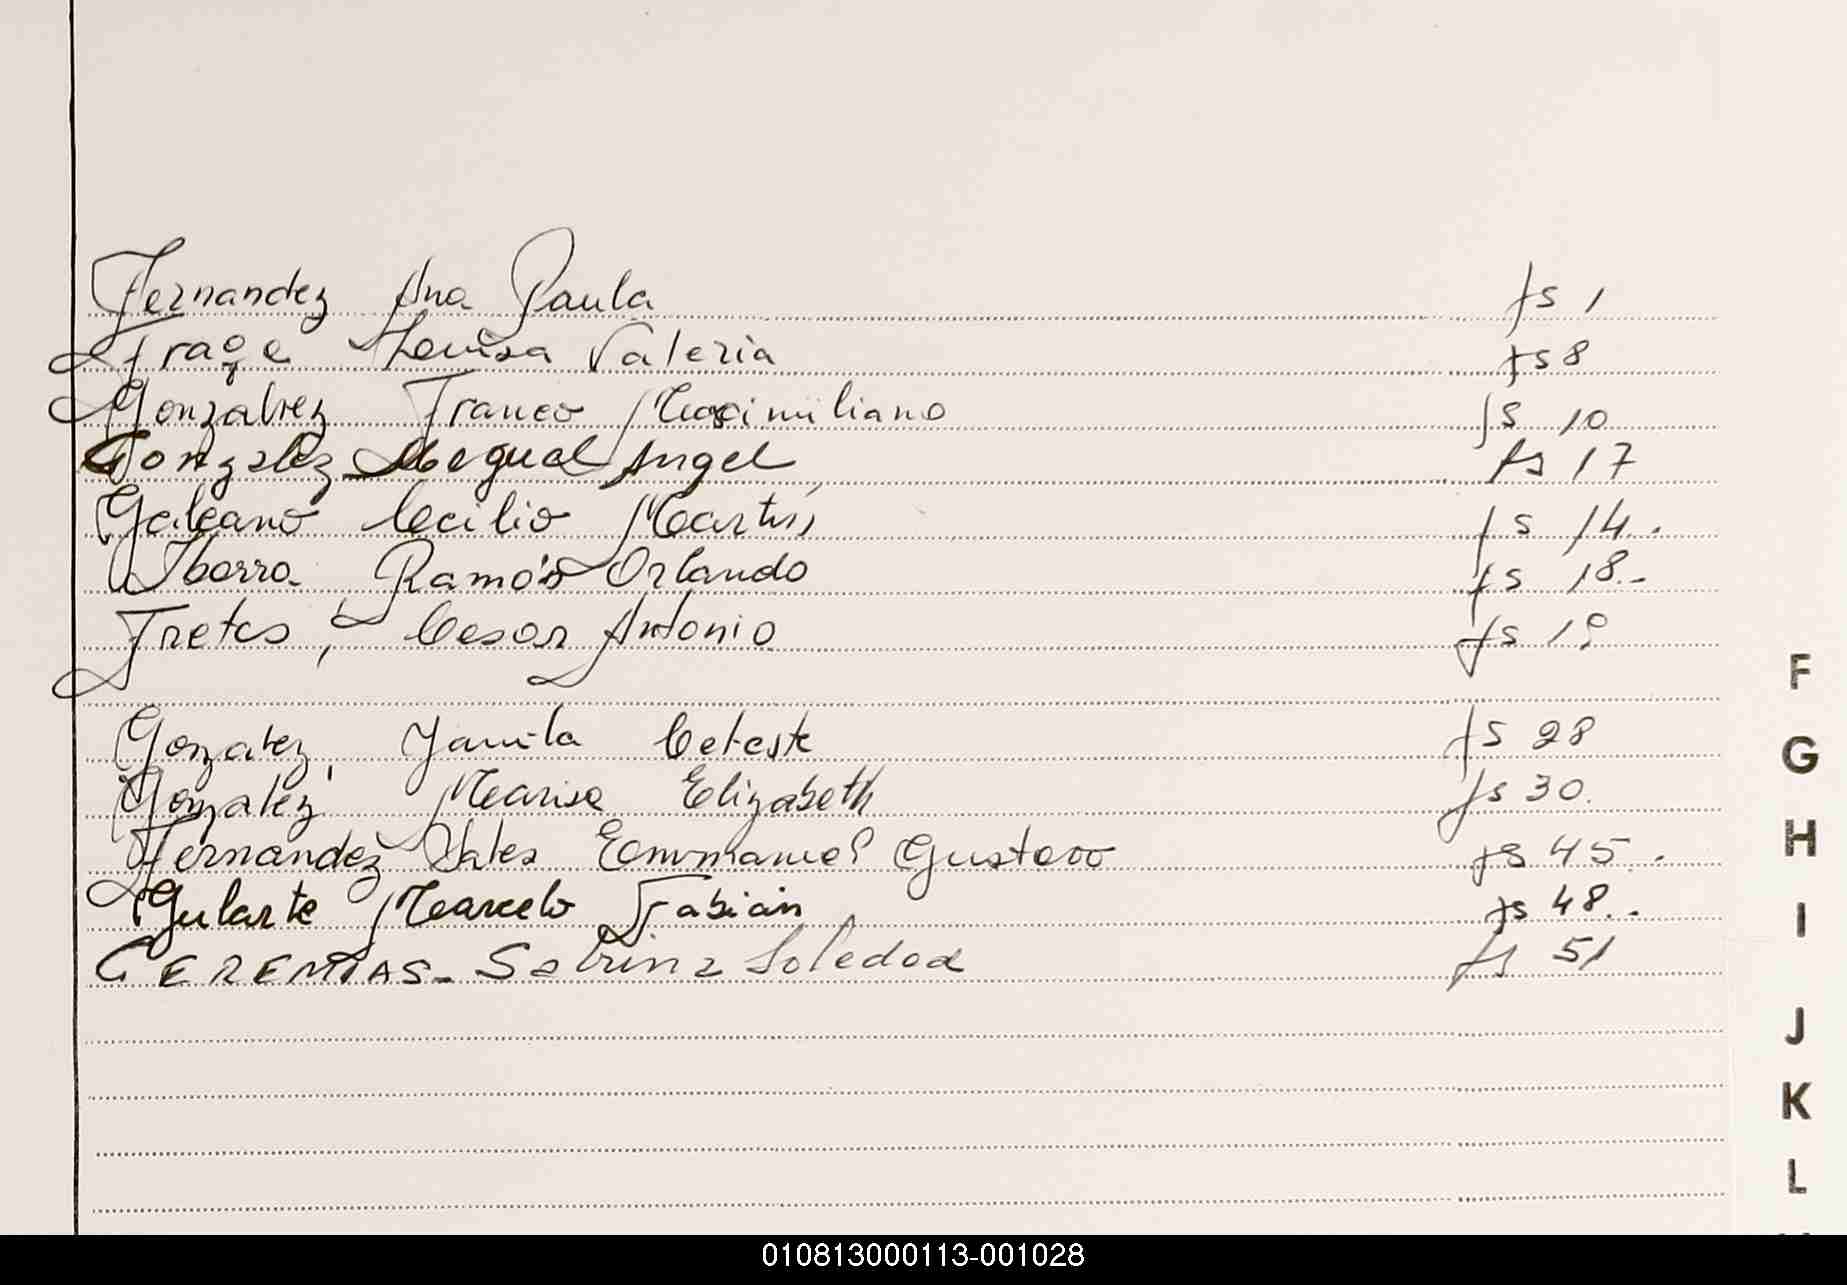 Fernandez Ana Paula fs 1
Valeria fs 8
Gonzalez Franco Maximiliano fs 10
Gonzalez Miguel Angel fs 17
Galeano Cecilio Martín fs 14.
Ibarra Ramón Orlando fs 18.-
Fretes, Cesar Antonio fs 19
Gonzalez, Yamila Celeste fs 28
Gonzalez Marisa Elizabeth fs 30.
Fernandez Emmanuel Gustavo fs 45.
Gularte Marcelo Fabián fs 48..
GEREMIAS - Sabrina Soledad fs 51
F
G
H
I
J
K
L
010813000113-001028